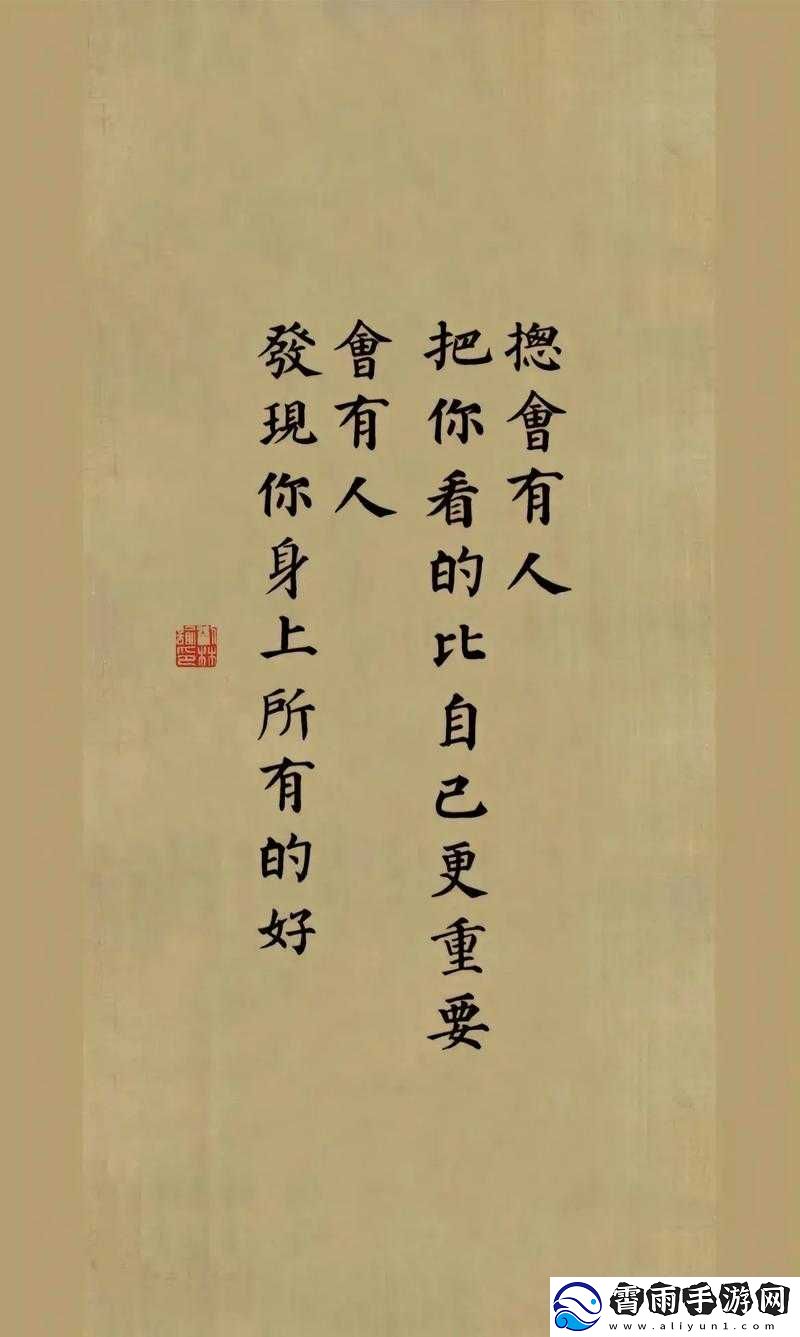 摠會有人
把你看的比自己更重要
會有人
發現你身上所有的好
霄雨手游网
www.aliyun1.com